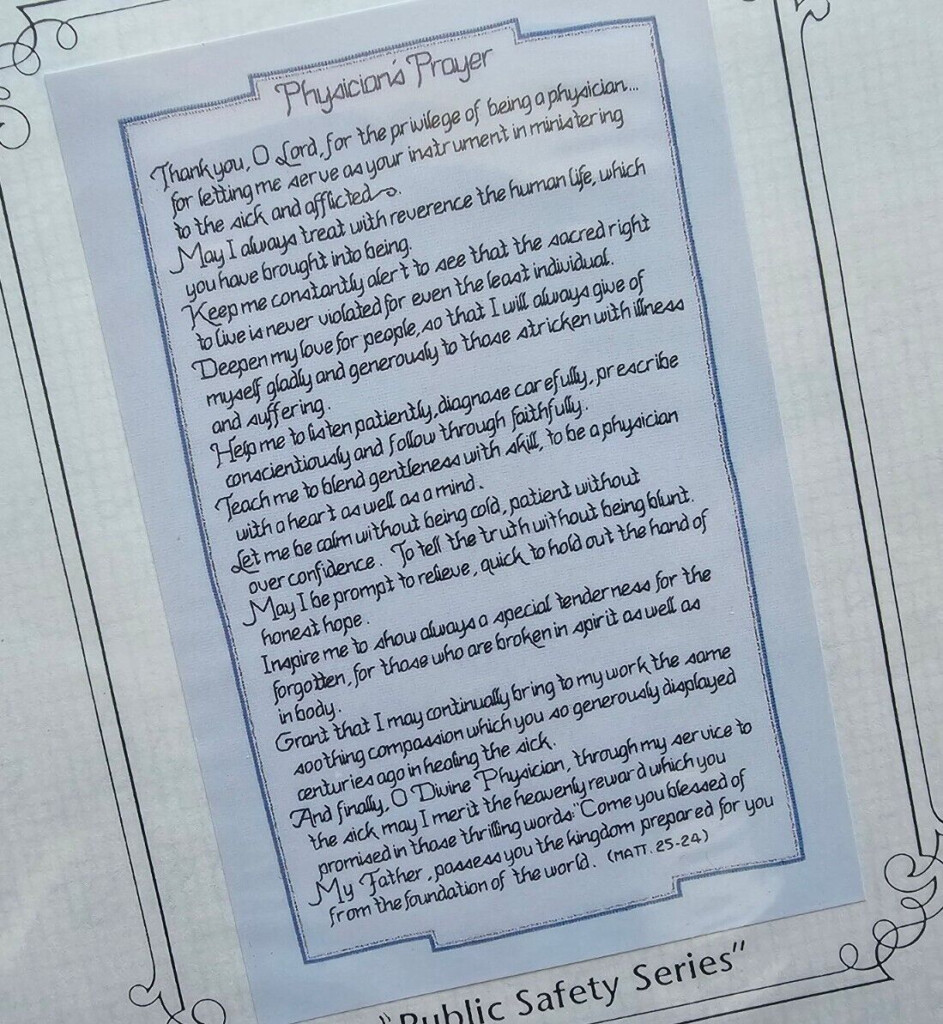 Physician's Prayer
Thank you, O Lord, for the privilege of being a physician...
for letting me serve as your instrument in ministering
to the sick and afflicted.
May I always treat with reverence the human life, which
you have brought into being.
Keep me constantly alert to see that the sacred right
to live is never violated for even the least individual.
Deepen my love for people, so that I will always give of
myself gladly and generously to those stricken with illness
and suffering.
Help me to listen patiently, diagnose carefully, prescribe
conscientiously and follow through faithfully.
Teach me to blend gentleness with skill, to be a physician
with a heart as well as a mind.
Let me be calm without being cold, patient without
over confidence. To tell the truth without being blunt.
May I be prompt to relieve, quick to hold out the hand of
honest hope.
Inspire me to show always a special tenderness for the
forgotten, for those who are broken in spirit as well as
in body.
Grant that I may continually bring to my work the same
soothing compassion which you so generously displayed
centuries ago in healing the sick.
And finally, O Divine Physician, through my service to
the sick may I merit the heavenly reward which you
promised in those thrilling words: "Come you blessed of
My Father, possess you the kingdom prepared for you
from the foundation of the world. (MATT. 25-24)
"Public Safety Series"